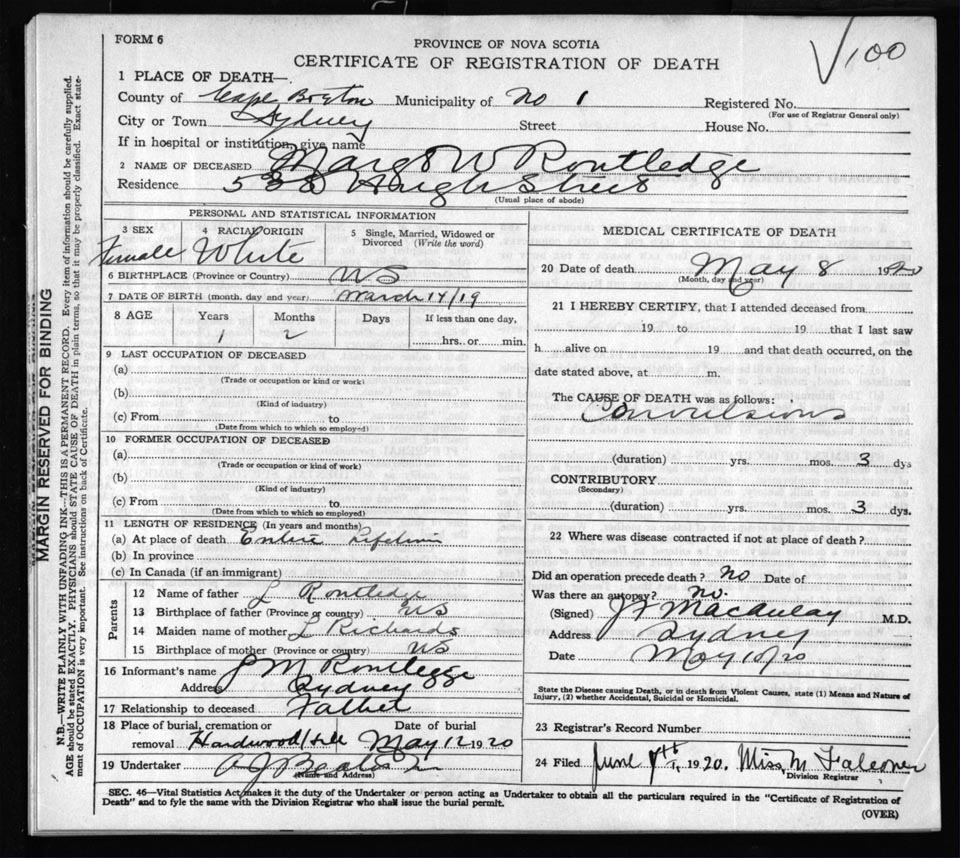 √100
FORM 6
PROVINCE OF NOVA SCOTIA
CERTIFICATE OF REGISTRATION OF DEATH
1 PLACE OF DEATH—
County of Cape Breton Municipality of No 1 Registered No.
(For use of Registrar General only)
City or Town Sydney Street House No.
If in hospital or institution, give name
2 NAME OF DECEASED Marg W Routledge
Residence Hugh Street
(Usual place of abode)
PERSONAL AND STATISTICAL INFORMATION
3 SEX 4 RACIAL ORIGIN 5 Single, Married, Widowed or Divorced (Write the word)
Female White
6 BIRTHPLACE (Province or Country) NS
7 DATE OF BIRTH (month, day and year) March 14/19
8 AGE Years Months Days If less than one day,
1 2 hrs. or min.
9 LAST OCCUPATION OF DECEASED
(a)
(Trade or occupation or kind or work)
(b)
(Kind of industry)
(c) From to
(Date from which to which so employed)
10 FORMER OCCUPATION OF DECEASED
(a)
(Trade or occupation or kind of work)
(b)
(Kind of industry)
(c) From to
(Date from which to which so employed)
11 LENGTH OF RESIDENCE (In years and months)
(a) At place of death Entire Lifetime
(b) In province
(c) In Canada (if an immigrant)
Parents
12 Name of father L Routledge
13 Birthplace of father (Province or country) NS
14 Maiden name of mother L Richards
15 Birthplace of mother (Province or country) NS
16 Informant's name J M Routledge
Address Sydney
17 Relationship to deceased Father
18 Place of burial, cremation or Date of burial
removal Hardwood Hill May 12 1920
19 Undertaker A J Beaton
(Name and Address)
MEDICAL CERTIFICATE OF DEATH
20 Date of death May 8 1920
(Month, day and year)
21 I HEREBY CERTIFY, that I attended deceased from
19 to 19 that I last saw
h alive on 19 and that death occurred, on the
date stated above, at m.
The CAUSE OF DEATH was as follows:
Convulsions
(duration) yrs. mos. 3 dys
CONTRIBUTORY
(Secondary)
(duration) yrs. mos. 3 dys.
22 Where was disease contracted if not at place of death?
Did an operation precede death? No Date of
Was there an autopsy? No.
(Signed) J F Macaulay M.D.
Address Sydney
Date May 10/20
State the Disease causing Death, or in death from Violent Causes, state (1) Means and Nature of
Injury, (2) whether Accidental, Suicidal or Homicidal.
23 Registrar's Record Number
24 Filed June 1920. Miss M Falconer
Division Registrar
SEC. 46—Vital Statistics Act makes it the duty of the Undertaker or person acting as Undertaker to obtain all the particulars required in the "Certificate of Registration of
Death" and to fyle the same with the Division Registrar who shall issue the burial permit.
(OVER)
MARGIN RESERVED FOR BINDING
N.B.—WRITE PLAINLY WITH UNFADING INK—THIS IS A PERMANENT RECORD. Every item of information should be carefully supplied.
AGE should be stated EXACTLY. PHYSICIANS should STATE CAUSE OF DEATH in plain terms, so that it may be properly classified. Exact state-
ment of OCCUPATION is very important. See instructions on back of Certificate.